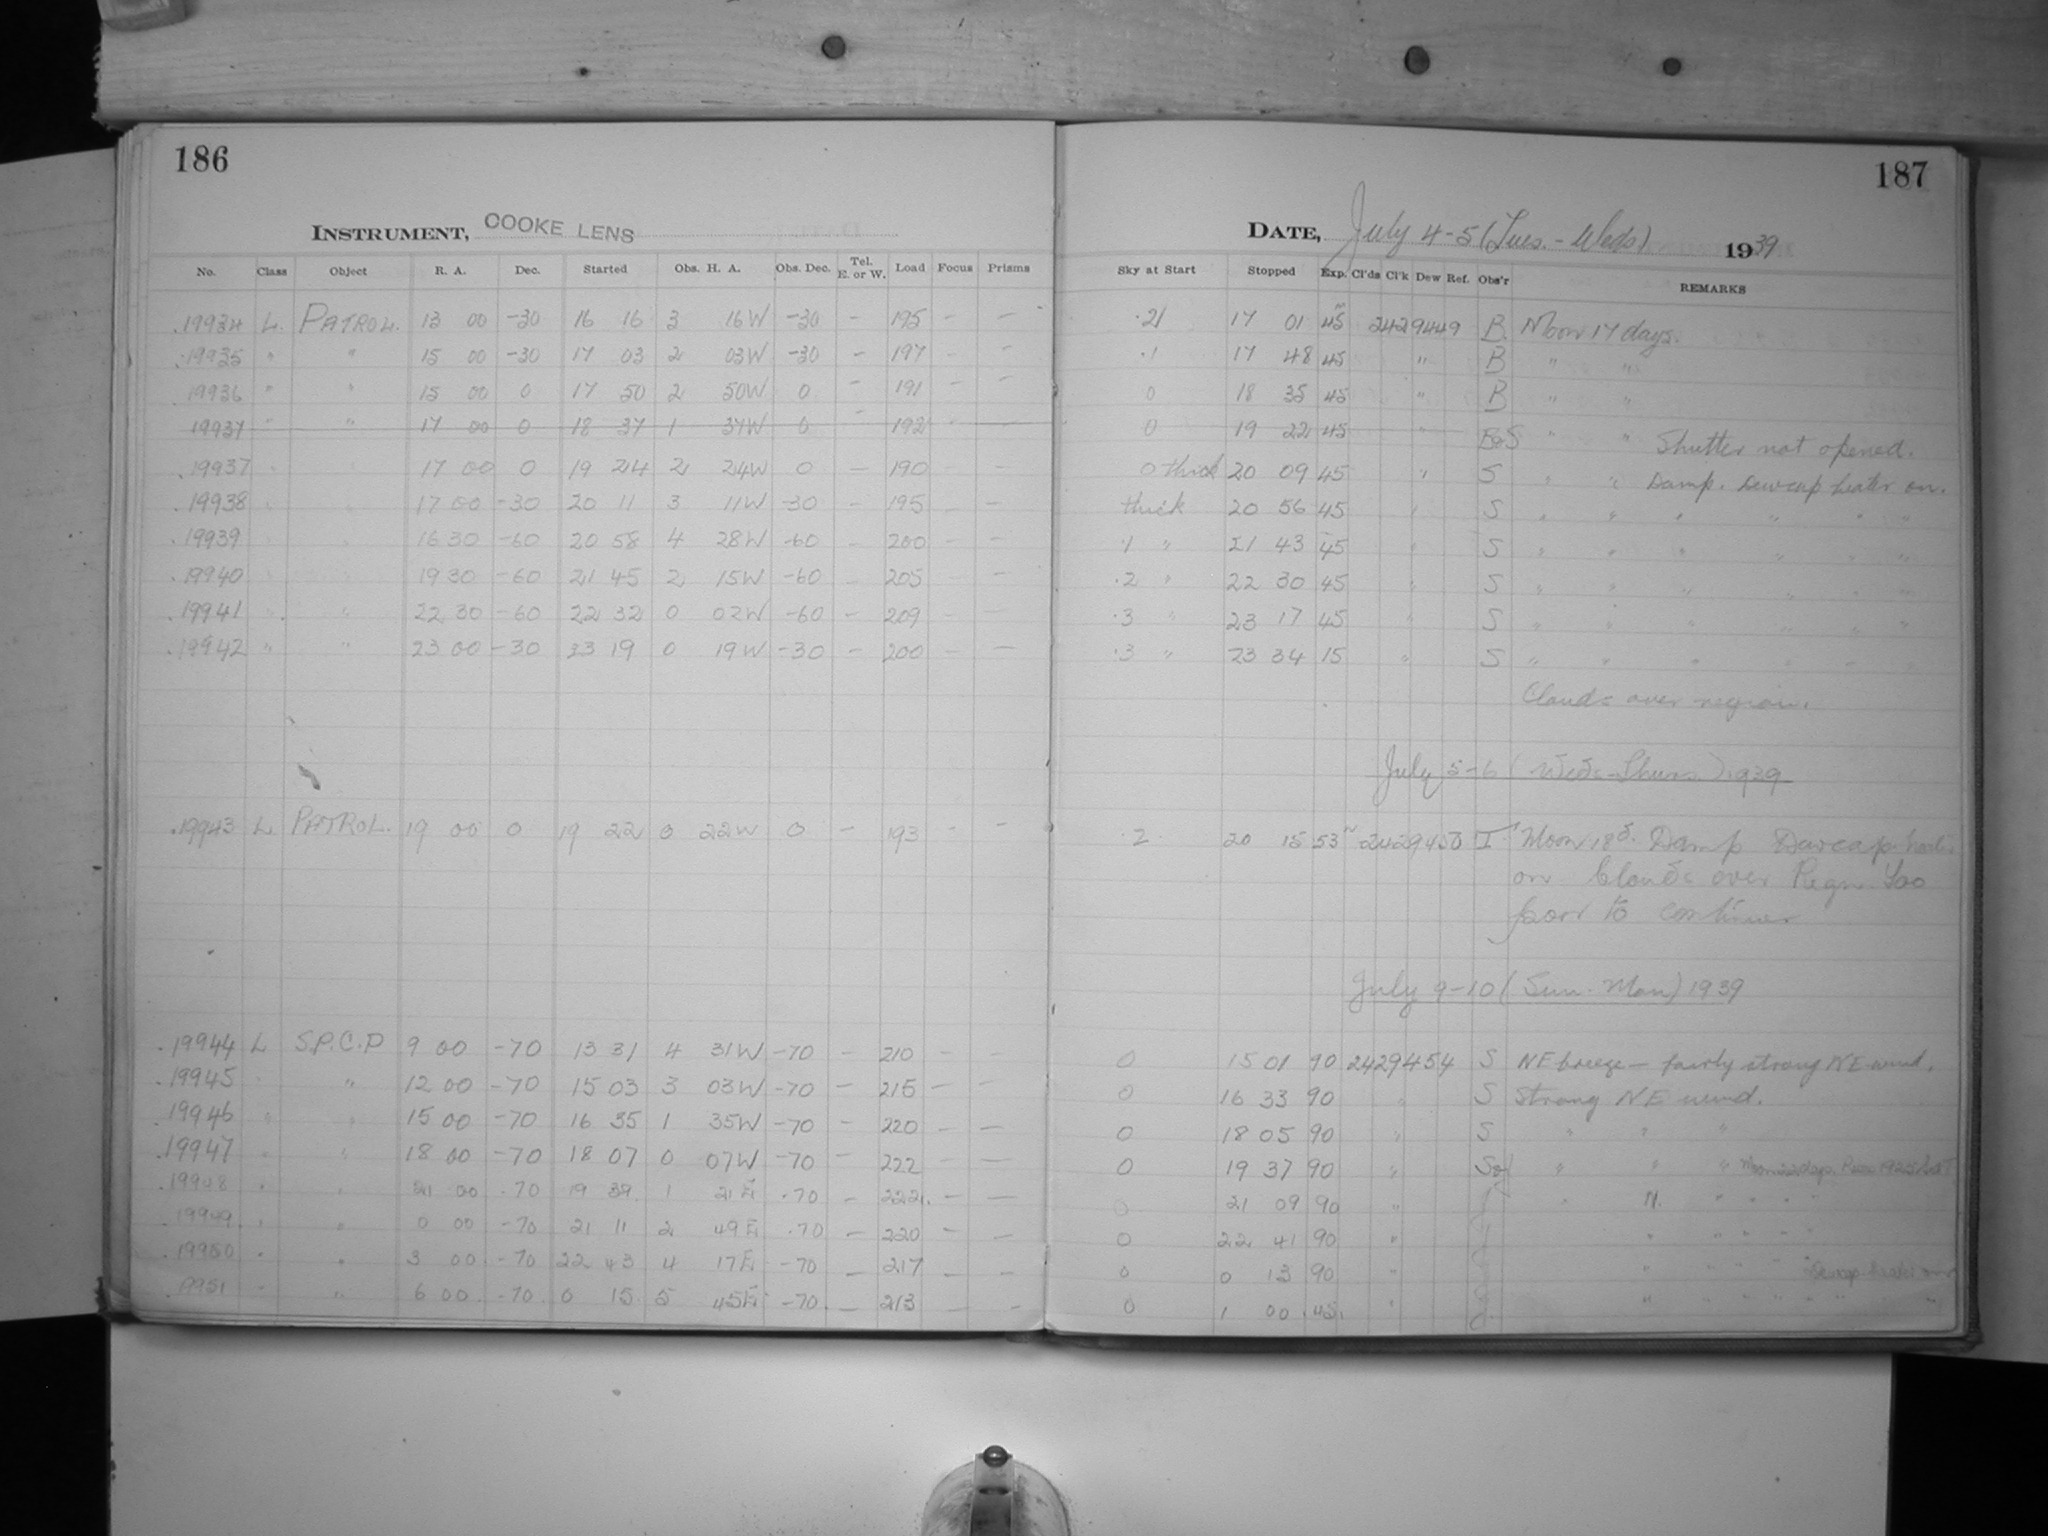 186
INSTRUMENT, COOKE LENS
No. Class Object R. A. Dec. Started Obs. H. A. Obs. Dec. Tel. E. or W. Load Focus Prisms
19934 L. PATROL. 13 00 -30 16 16 3 16W -30 - 195 - -
19935 " " 15 00 -30 17 03 2 03W -30 - 197 - -
19936 " " 15 00 0 17 50 2 50W 0 - 191 - -
19937 " " 17 00 0 18 37 1 37W 0 - 192 - -
19937 " " 17 00 0 19 24 2 24W 0 - 190 - -
19938 " " 17 00 -30 20 11 3 11W -30 - 195 - -
19939 " " 16 30 -60 20 58 4 28W -60 - 200 - -
19940 " " 19 30 -60 21 45 2 15W -60 - 205 - -
19941 " " 22 30 -60 22 32 0 02W -60 - 209 - -
19942 " " 23 00 -30 23 19 0 19W -30 - 200 - -
19943 L PATROL. 19 00 0 19 22 0 22W 0 - 193 - -
19944 L S.P.C.P 9 00 -70 13 31 4 31W -70 - 210 - -
19945 " " 12 00 -70 15 03 3 03W -70 - 215 - -
19946 " " 15 00 -70 16 35 1 35W -70 - 220 - -
19947 " " 18 00 -70 18 07 0 07W -70 - 222 - -
19948 " " 21 00 -70 19 39 1 21E -70 - 222 - -
19949 " " 0 00 -70 21 11 2 49E -70 - 220 - -
19950 " " 3 00 -70 22 43 4 17E -70 - 217 - -
19951 " " 6 00 -70 0 15 5 45E -70 - 213 - -
187
DATE, July 4-5 (Tues. - Weds) 1939
Sky at Start Stopped Exp. Cl'ds Cl'k Dew Ref. Obs'r REMARKS
.2 17 01 45 2429449 B Moon 17 days.
.1 17 48 45 " B " "
0 18 35 45 " B " "
0 19 22 45 " B&S " " Shutter not opened.
0 thick 20 09 45 " S " " Damp. Dewcap heater on.
thick 20 56 45 " S " " " " " "
.1 " 21 43 45 " S " " " " " "
.2 " 22 30 45 " S " " " " " "
.3 " 23 17 45 " S " " " " " "
.3 " 23 34 15 " S " " " " " "
Clouds over region.
July 5-6 (Weds-Thurs.) 1939
.2 20 15 53m 2429450 Moon 18d. Damp Dewcap heat.
on Clouds over Regn Too
poor to continue
July 9-10 (Sun. Mon) 1939
0 15 01 90 2429454 S NE breeze - fairly strong NE wind.
0 16 33 90 " S Strong NE wind.
0 18 05 90 " S " " "
0 19 37 90 " " " "
0 21 09 90 " " "
0 22 41 90 " " " "
0 0 13 90 " " " Dewcap heater on
0 1 00 45 " " "